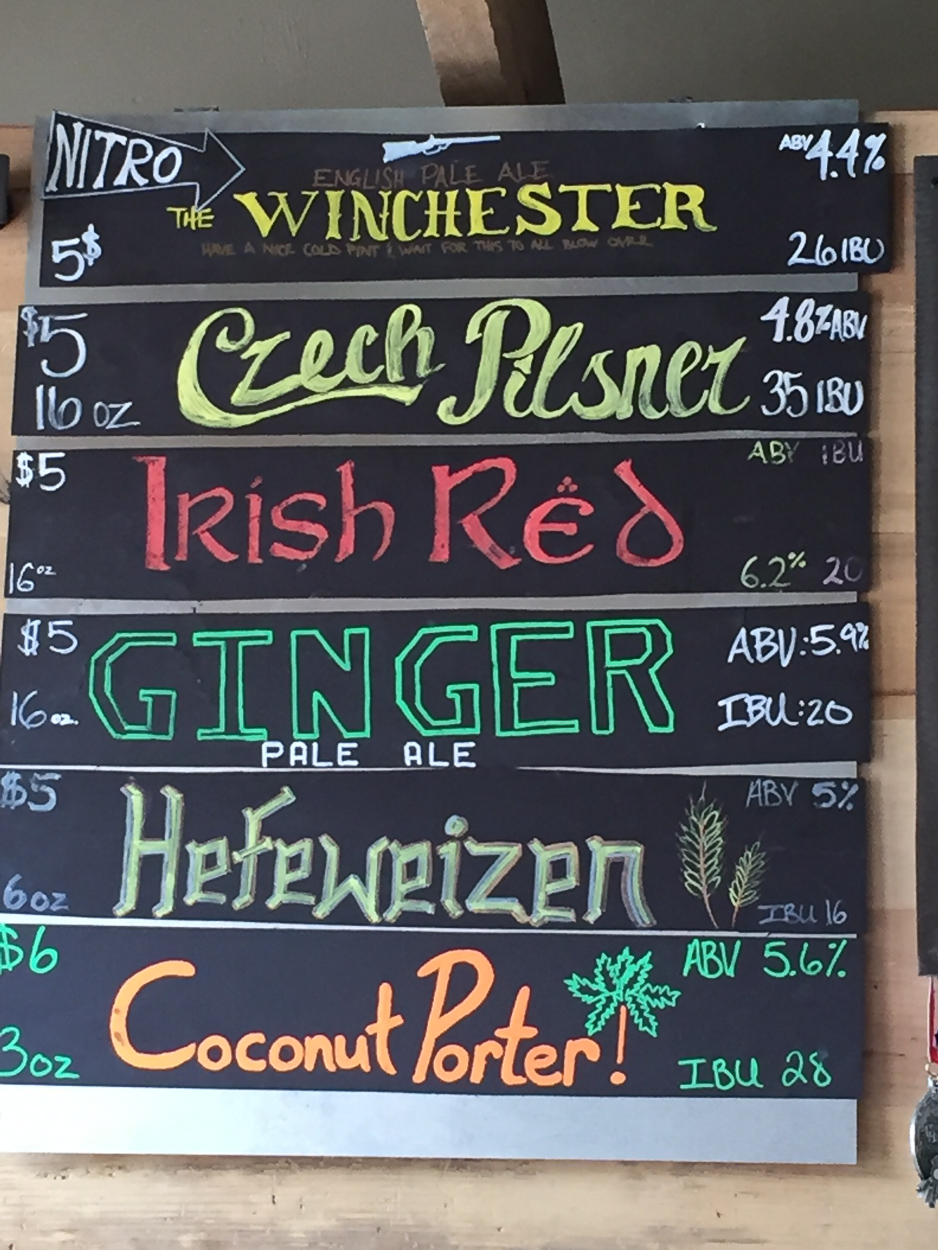 NITRO
ENGLISH PALE ALE
ABV 4.4%
THE WINCHESTER
HAVE A NICE COLD PINT & WAIT FOR THIS TO ALL BLOW OVER
5$
26 IBU
$5
Czech Pilsner
4.8% ABV
16 oz
35 IBU
$5
Irish Rëd
ABV IBU
16 oz
6.2% 20
$5
GINGER
ABV:5.9%
16 oz.
IBU:20
PALE ALE
$5
Hefeweizen
ABV 5%
6oz
IBU 16
$6
Coconut Porter!
ABV 5.6%
3oz
IBU 28